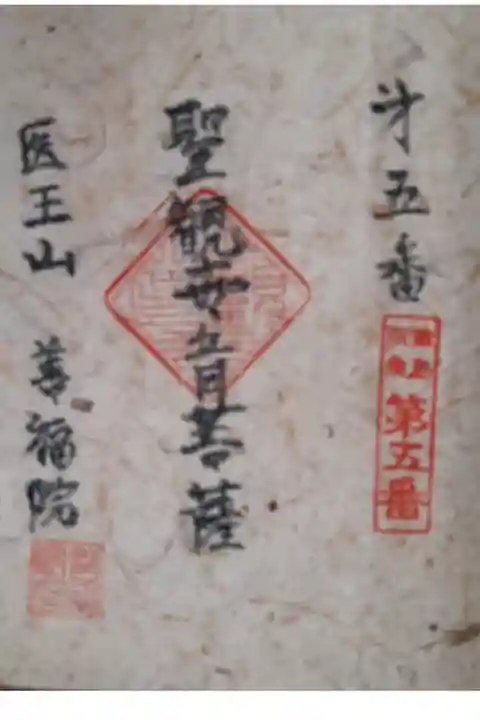 第五番
第五番
聖観世音菩薩
医王山 善福院